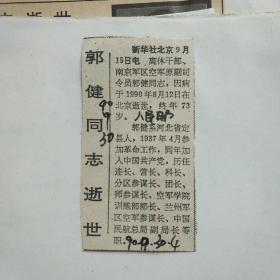 郭健同志逝世
新华社北京9月
15日电 离休干部、
南京军区空军原副司
令员郭健同志，因病
于1990年8月12日在
北京逝世，终年73
岁。 人民日报
郭健系河北省定
县人，1937年4月参
加革命工作，同年加
入中国共产党，历任
连长、营长、科长、
分区参谋长、团长、
师参谋长、空军学院
训练部部长、兰州军
区空军参谋长、中国
民航总局副局长等
职。
90.9.30.4
90
9
30